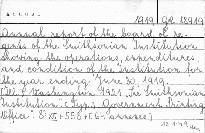 1919
Annual report of the board of re-
gents of the Smithsonian Institution
showing the operations, expenditures,
and condition of the Institution for
the year ending June 30 1919.
Washington 1921. The Smithsonian
Institution. Government Printing
Office. 8° XII + 556